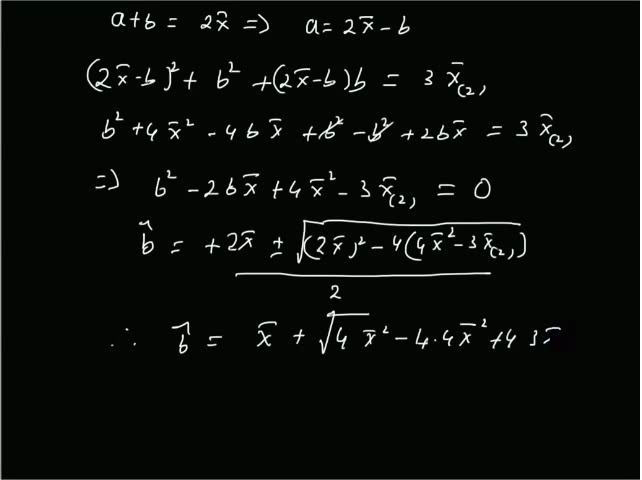 a+b = 2x̄ => a = 2x̄ - b
(2x̄-b)² + b² + (2x̄-b)b = 3 x̄₍₂₎
b² + 4x̄² - 4bx̄ + b² - b² + 2bx̄ = 3 x̄₍₂₎
=> b² - 2bx̄ + 4x̄² - 3x̄₍₂₎ = 0
b̂ = +2x̄ ± √((2x̄)² - 4(4x̄² - 3x̄₍₂₎))
2
∴ b̂ = x̄ + √4 x̄² - 4.4x̄² + 4 3x̄